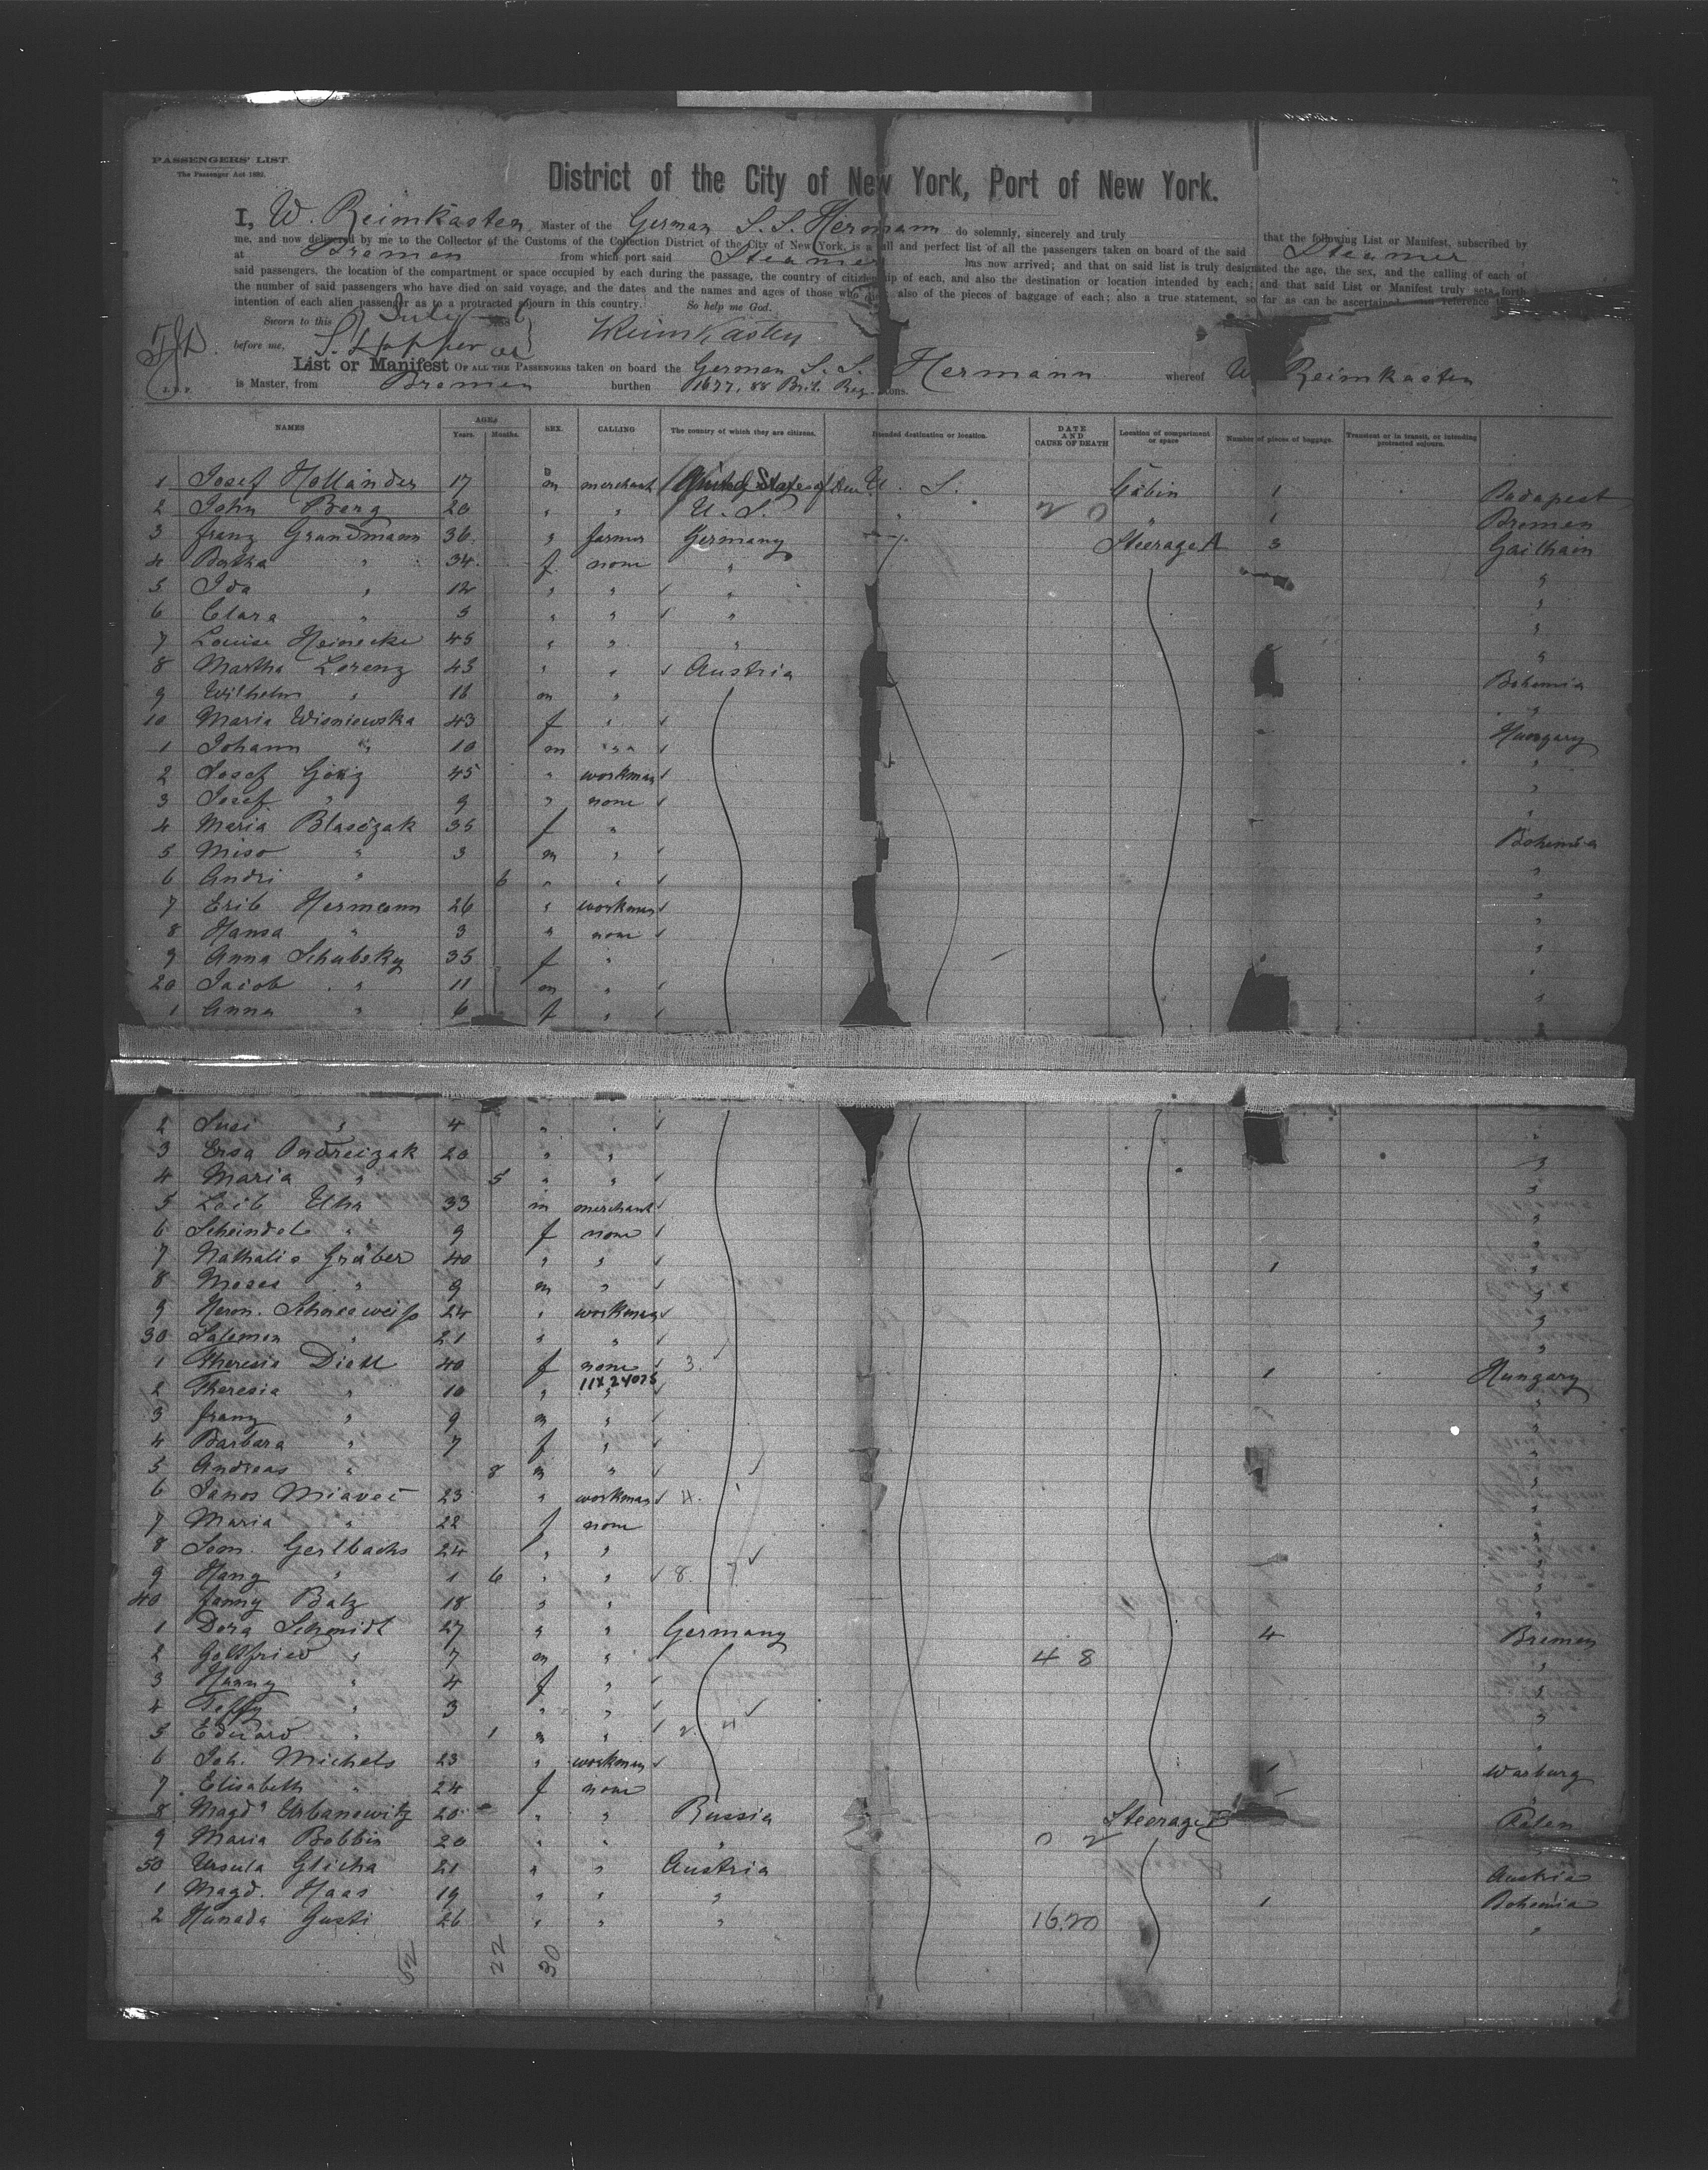 PASSENGERS' LIST.
The Passenger Act 1882.
District of the City of New York, Port of New York.
I, W. Reimkasten Master of the German S. S. Hermann do solemnly, sincerely and truly that the following List or Manifest, subscribed by
me, and now delivered by me to the Collector of the Customs of the Collection District of the City of New York, is a full and perfect list of all the passengers taken on board of the said Steamer
at Bremen from which port said Steamer has now arrived; and that on said list is truly designated the age, the sex, and the calling of each of
said passengers, the location of the compartment or space occupied by each during the passage, the country of citizenship of each, and also the destination or location intended by each; and that said List or Manifest truly sets forth
the number of said passengers who have died on said voyage, and the dates and the names and ages of those who died, also of the pieces of baggage of each; also a true statement, so far as can be ascertained, reference
intention of each alien passenger as to a protracted sojourn in this country. So help me God.
Sworn to this July 188
before me, Reimkasten
List or Manifest OF ALL THE PASSENGERS taken on board the German S. S. Hermann whereof W Reimkasten
is Master, from Bremen burthen 1677,88 Brit. Reg. tons.
NAMES AGES Years. Months. SEX. CALLING The country of which they are citizens. Intended destination or location. DATE AND CAUSE OF DEATH Location of compartment or space Number of pieces of baggage. Transient or in transit, or intending protracted sojourn.
1 Josef Holländer 17 m merchant United States of U. S. Cabin 1 Budapest
2 John Berg 20 " " U. S. " 2 0 " 1 Bremen
3 Franz Grundmann 36 " farmer Germany Steerage A 3 Gailhain
4 Bertha " 34 f none " "
5 Ida " 12 " " "  "
6 Clara " 5 " " " "
7 Louise Heinecke 45 " " " "
8 Martha Lorenz 43 " " Austria Bohemia
9 Wilhelm " 16 m " "
10 Maria Wisniewska 43 f " Hungary
1 Johann " 10 m " "
2 Josef 45 " workman "
3 Josef " 9 " none "
4 Maria Blasczak 35 f " Bohemia
5 Miso " 3 m " "
6 Andri " 6 " " "
7 Erib Hermann 26 " workman "
8 Hansa " 3 " none "
9 Anna Schubsky 35 f " "
20 Jacob " 11 m " "
1 Anna " 6 f "
2 Susi " 4 " "
3 Ersa Ondreiczak 20 " " "
4 Maria " 5 " " "
5 Leib Uhr 33 m merchant "
6 Scheindel " 9 f none "
7 Nathalie Gräber 40 " " 1 "
8 Moses " 9 m " "
9 Heron. Schneeweiss 24 " workman "
30 Salomon " 21 " " "
1 Theresia Dietl 40 f none 3. 1 Hungary
2 Theresia " 10 " 11X24075 "
3 Franz " 9 m " "
4 Barbara " 7 f " "
5 Andreas " 8 m " "
6 Janos Miavec 23 " workman 4. "
7 Maria " 22 f none "
8 Sem. Gerlbachs 24 " " "
9 Hang " 1 6 " " 8. 7. "
40 Fanny Balz 18 " " "
1 Dora Schmidt 27 " " Germany 4 Bremen
2 Gottfried " 7 m " 4 8 "
3 Hanny " 4 f " "
4 Teffy " 3 " " "
5 Eduard " 1 m " 2. 4 "
6 Joh. Michels 23 " workman 1 Warburg
7 Elisabeth " 24 f none "
8 Magda Urbanowitz 20 " " Russia Steerage B Polen
9 Maria Bobbin 20 " " " 0 2
50 Ursula Glicha 21 " " Austria Austria
1 Magd. Haas 19 " " " 1 Bohemia
2 Hanada Gusti 26 " " " 16.20 "
52 22 30